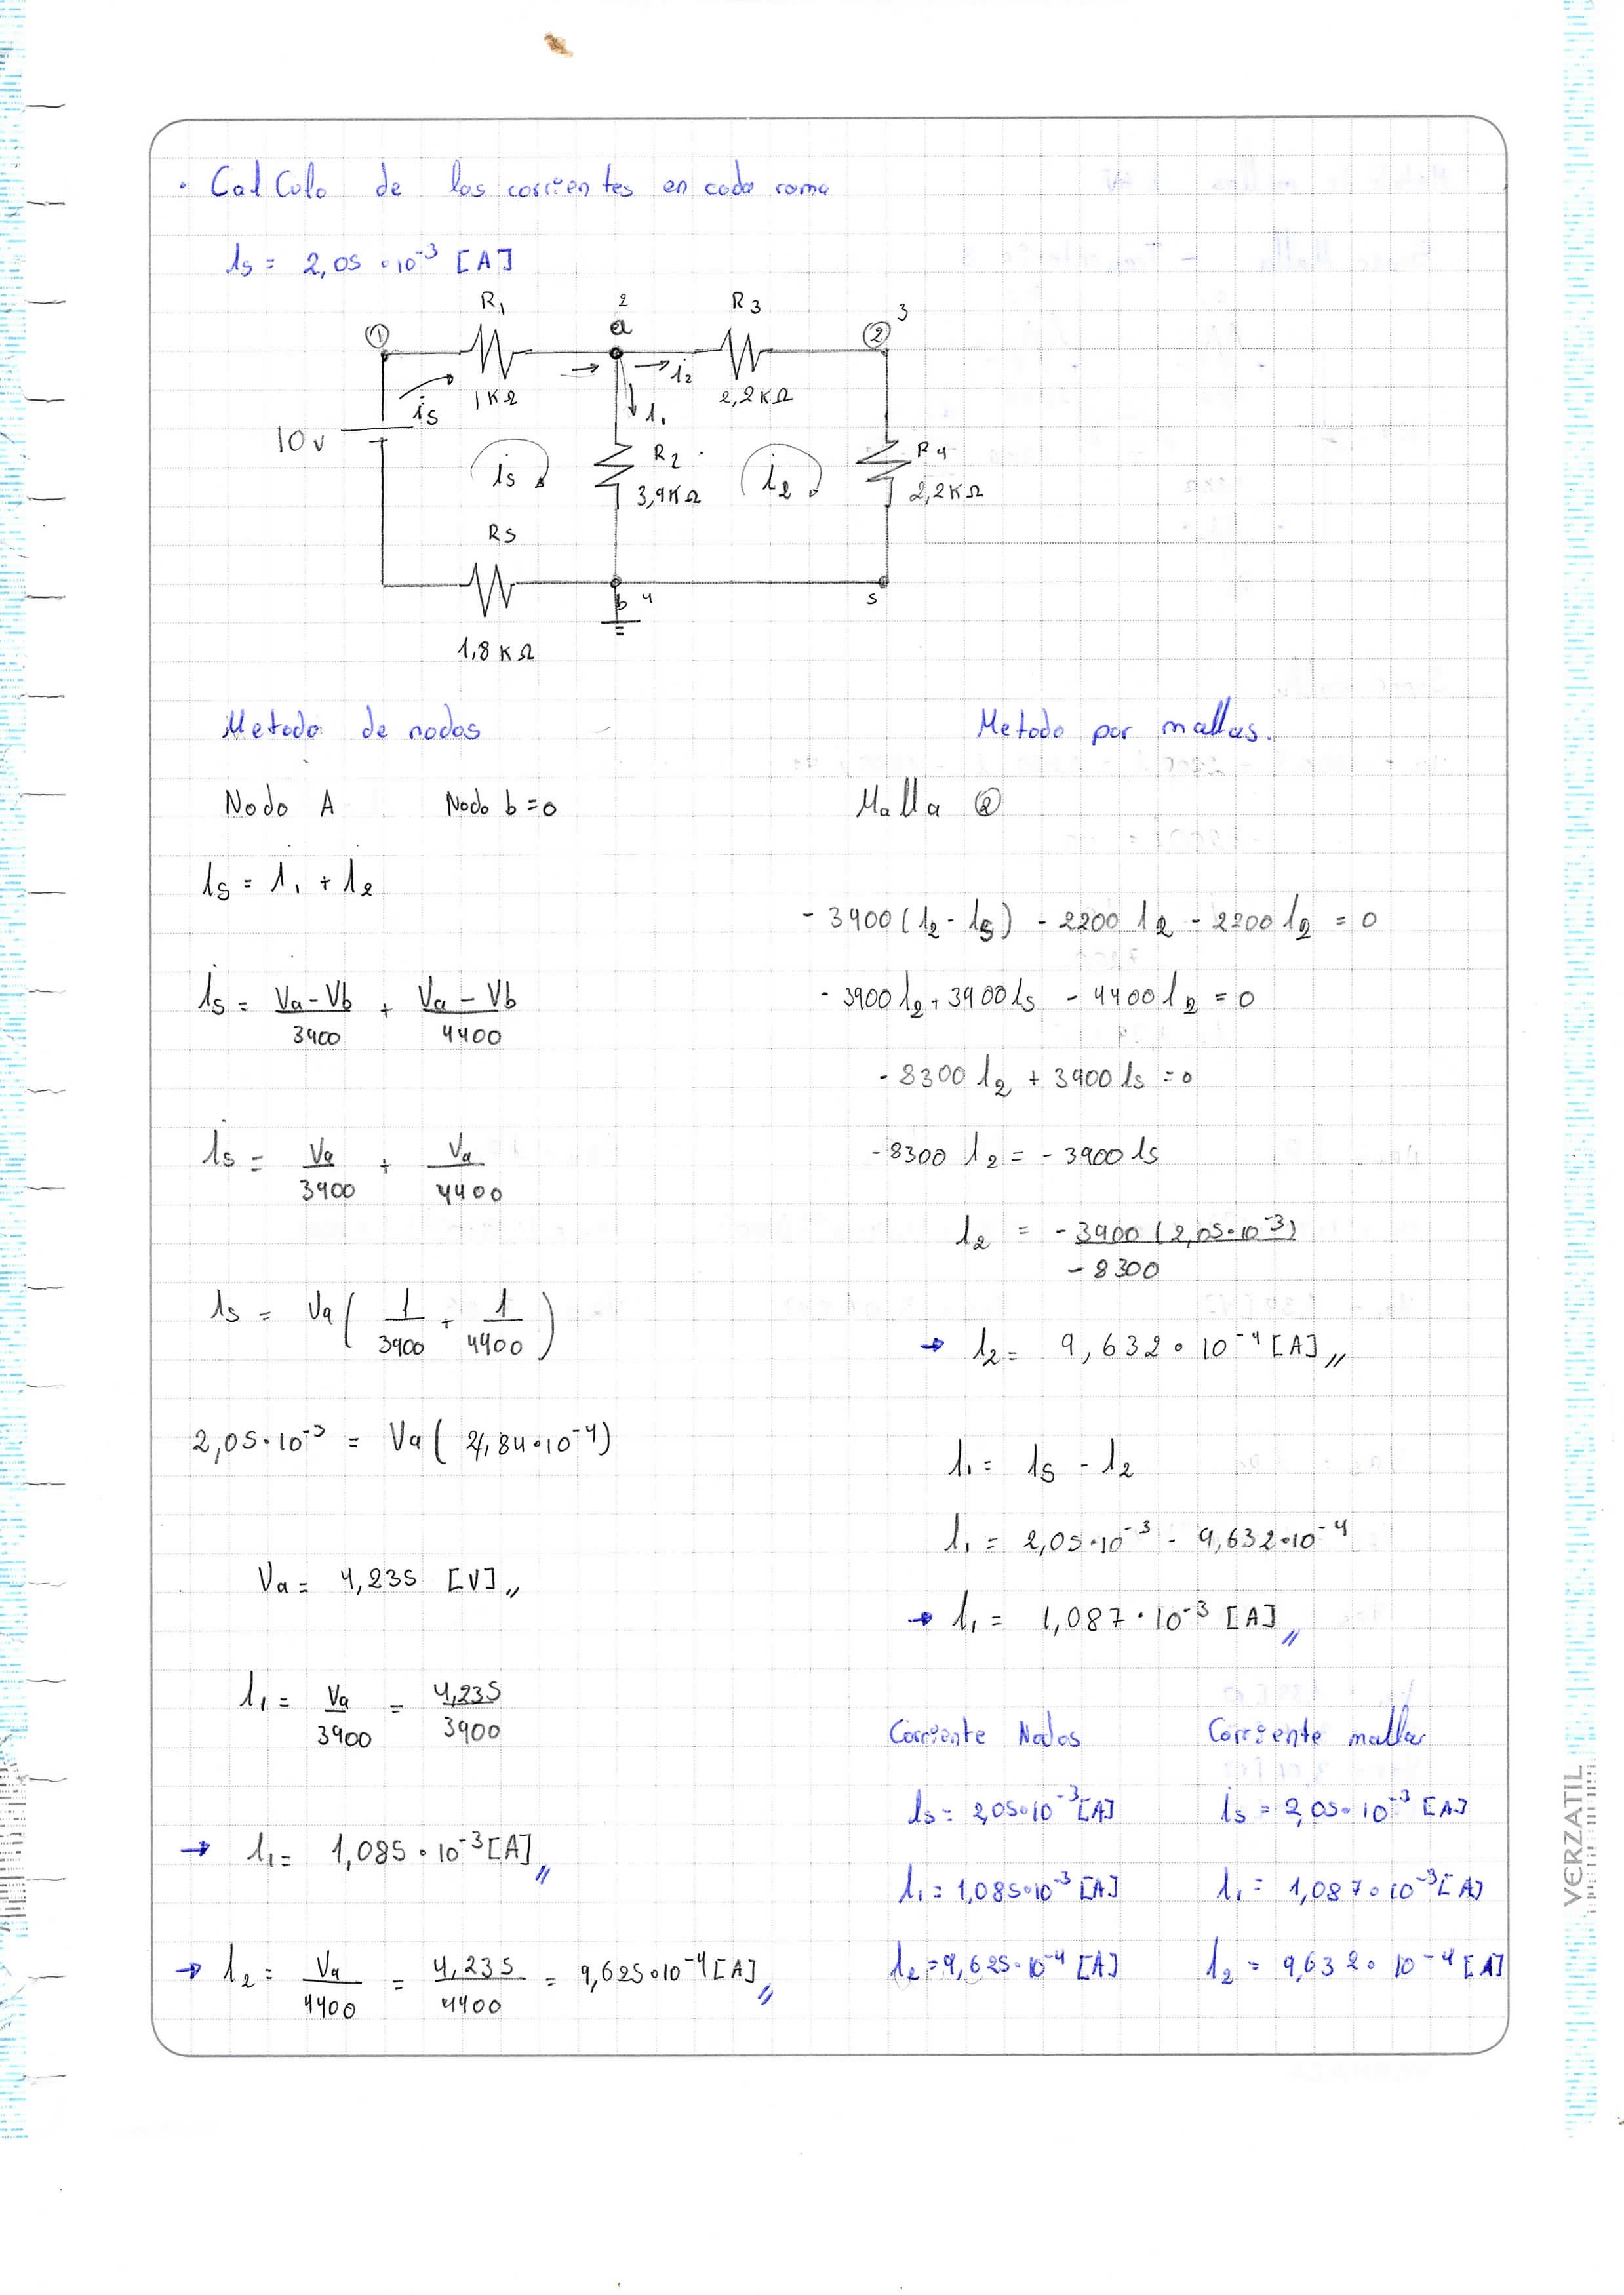 · CalColo de las corrientes en cada rama
is = 2,05 · 10⁻³ [A]
R₁ 2 R₃ 3
① a ②
is 1KΩ i₂ 2,2KΩ
i₁
10v
is R₂ i₂ R4
3,9KΩ 2,2KΩ
R5
b 4 5
1,8 KΩ
Metodo de nodos
Nodo A Nodo b = 0
is = i₁ + i₂
is = (Va - Vb)/3900 + (Va - Vb)/4400
is = Va/3900 + Va/4400
is = Va ( 1/3900 + 1/4400 )
2,05·10⁻³ = Va ( 4,84·10⁻⁴)
Va = 4,235 [V] //
i₁ = Va/3900 = 4,235/3900
→ i₁ = 1,085 · 10⁻³ [A] //
→ i₂ = Va/4400 = 4,235/4400 = 9,625·10⁻⁴ [A] //
Metodo por mallas.
Malla ②
- 3900 (i₂ - is) - 2200 i₂ - 2200 i₂ = 0
- 3900 i₂ + 3900 is - 4400 i₂ = 0
- 8300 i₂ + 3900 is = 0
- 8300 i₂ = - 3900 is
i₂ = - 3900 (2,05·10⁻³) / - 8300
→ i₂ = 9,632 · 10⁻⁴ [A] //
i₁ = is - i₂
i₁ = 2,05·10⁻³ - 9,632·10⁻⁴
→ i₁ = 1,087 · 10⁻³ [A] //
Corriente Nodos Corriente mallas
is = 2,05·10⁻³ [A] is = 2,05·10⁻³ [A]
i₁ = 1,085·10⁻³ [A] i₁ = 1,087·10⁻³ [A]
i₂ = 9,625·10⁻⁴ [A] i₂ = 9,632·10⁻⁴ [A]
VERZATIL